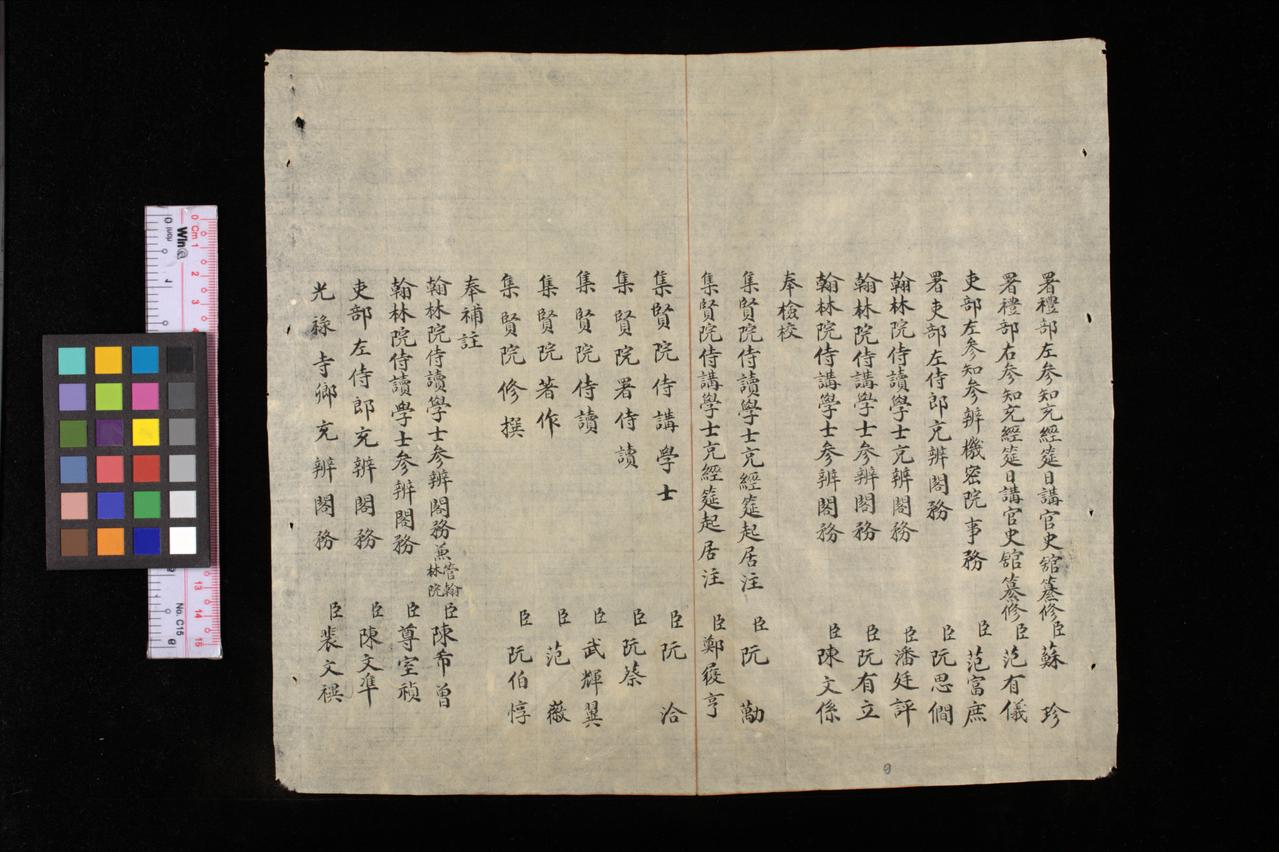 署禮部左參知充經筵日講官史舘纂修臣蘇珍
署禮部右參知充經筵日講官史舘纂修臣范有儀
吏部左參知參辨機密院事務臣范富庶
署吏部左侍郎充辨閣務臣阮思僩
翰林院侍讀學士充辨閣務臣潘廷評
翰林院侍講學士參辨閣務臣阮有立
翰林院侍講學士參辨閣務臣陳文係
奉檢校
集賢院侍讀學士充經筵起居注臣阮勸
集賢院侍講學士充經筵起居注臣鄭履亨
集賢院侍講學士臣阮洽
集賢院署侍讀臣阮蔡
集賢院侍讀臣武輝翼
集賢院著作臣范薇
集賢院修撰臣阮伯惇
奉補註
翰林院侍讀學士參辨閣務兼管翰林院臣陳希曾
翰林院侍讀學士參辨閣務臣尊室禎
吏部左侍郎充辨閣務臣陳文準
光祿寺卿充辨閣務臣裴文禩
9